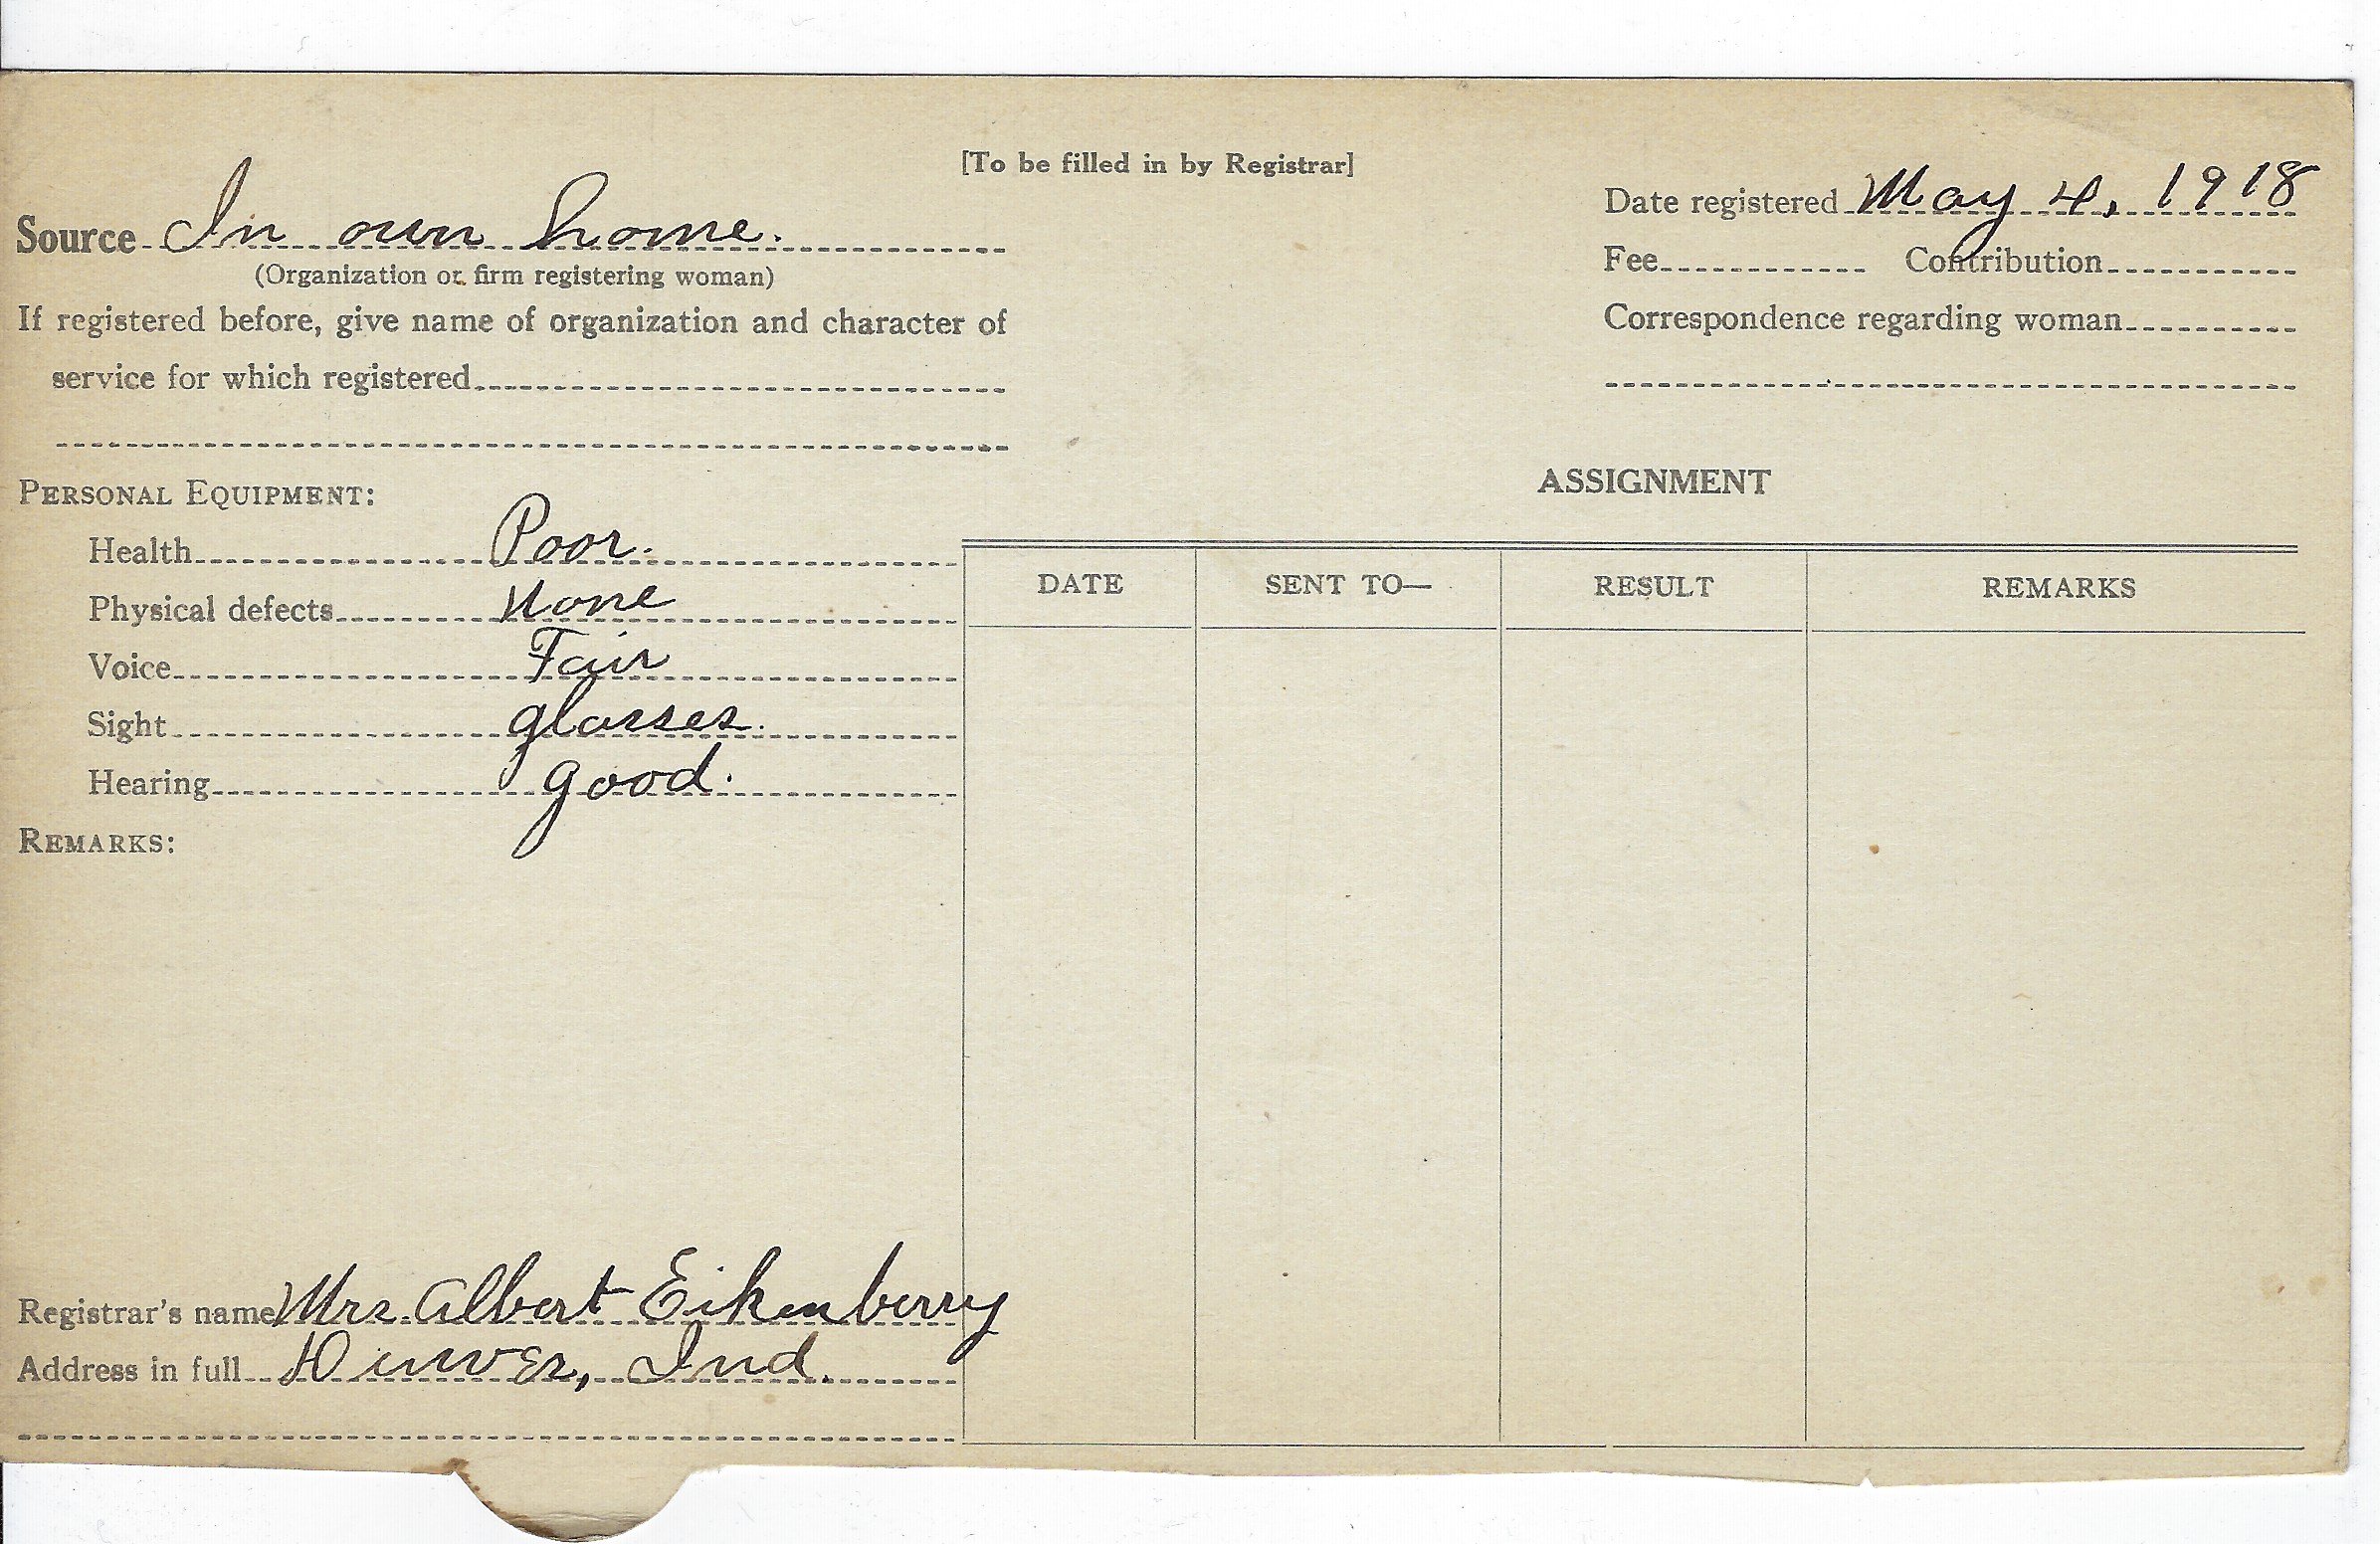 [To be filled in by Registrar]
Source In own home.
(Organization or firm registering woman)
If registered before, give name of organization and character of
service for which registered
Date registered May 4, 1918
Fee Contribution
Correspondence regarding woman
PERSONAL EQUIPMENT:
Health Poor.
Physical defects None
Voice Fair
Sight glasses.
Hearing good.
REMARKS:
Registrar's name Mrs. Albert Eikenberry
Address in full Denver, Ind.
ASSIGNMENT
DATE SENT TO— RESULT REMARKS